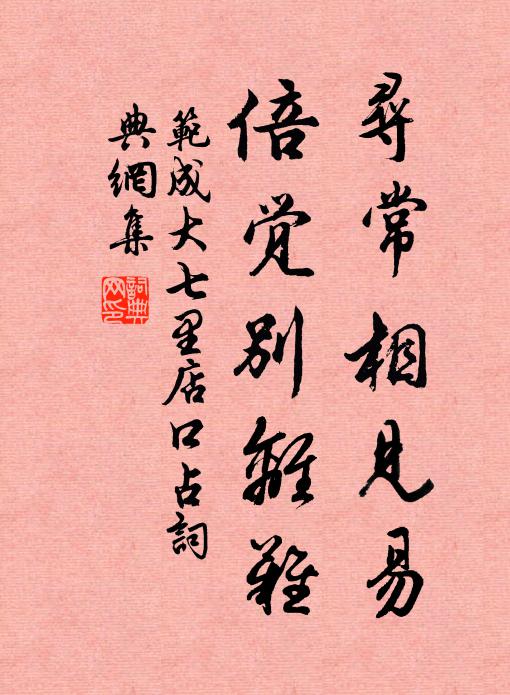 尋常相見易
倍覺別離難
範成大七里店口占詞
典網集
詞典網印